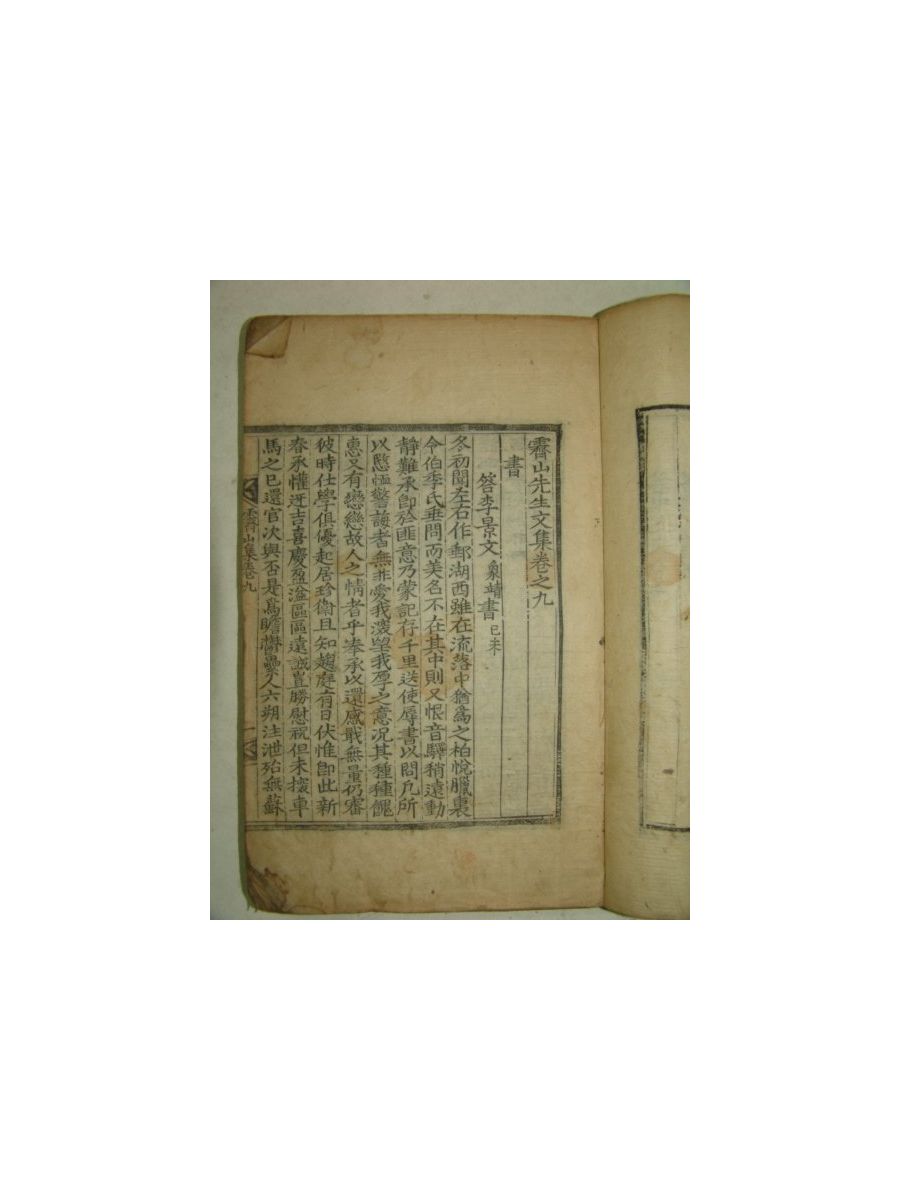 霽山先生文集卷之九
書
答李景文 象靖 書 己未
冬初聞左右作郵湖西雖在流落中猶爲之柏悅臘裏
令伯季氏垂問而美名不在其中則又恨音驛稍遠動
靜難承卽於匪意乃蒙記存千里送使辱書以問凡所
以愍恤警誨者無非愛我深望我厚之意況其種種餽
惠又有戀戀故人之情者乎奉承以還感戢無量仍審
彼時仕學俱優起居珍衛且知趨庭有日伏惟卽此新
春承懽迓吉喜慶盈溢區區遠誠豈勝慰祝但未稅車
馬之已還官次與否是爲瞻鬱纍人六朔注泄殆無蘇
霽山集卷九
一